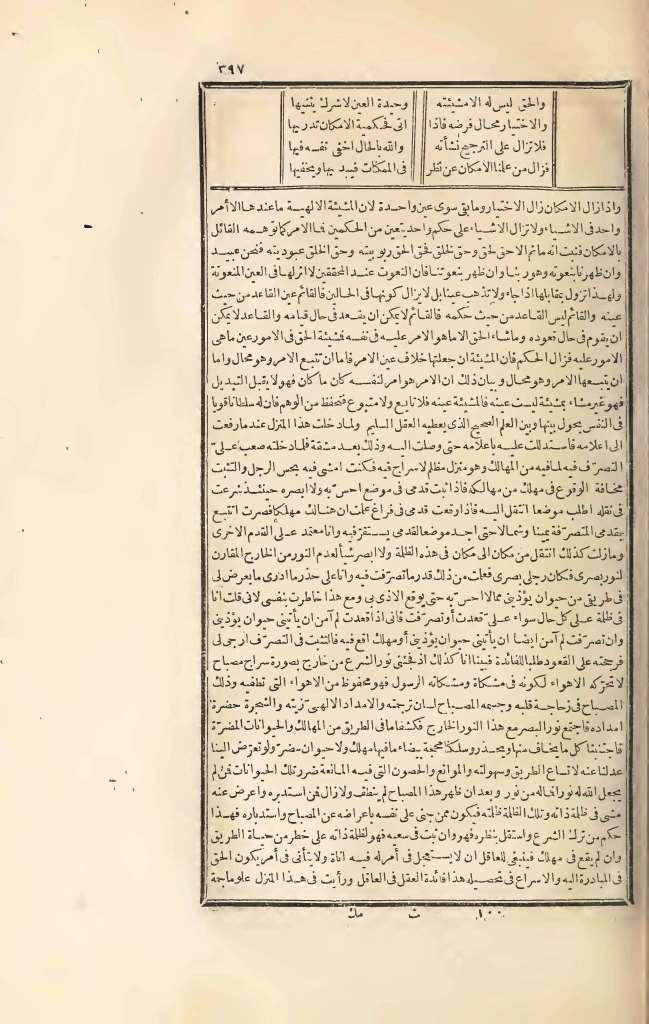 ٣٩٧
والحق ليس له الا مشيئته وحيدة العين لا شرك يثنيها
والاختيار محال فرضه فاذا اتى فحكمية الامكان تدريها
فلا تزال على الترجيح نشأته والله بالحال اخفى نفسه فيها
فزال من علمنا الامكان عن نظر فى الممكنات فيبديها ويخفيها
واذا زال الامكان زال الاختيار وما بقى سوى عين واحدة لان المشيئة الالهية ما عندها الا أمر
واحد فى الاشياء ولا تزال الاشياء على حكم واحد يتعين من الحكمين فما الامر كما توهمه القائل
بالامكان فثبت انه ما ثم الا حق لحق وحق لخلق فحق الحق ربوبيته وحق الخلق عبوديته فنحن عبيد
وان ظهرنا بنعوته وهو ربنا وان ظهر بنعوتنا فان النعوت عند المحققين لا اثر لها فى العين المنعوتة
ولهذا تزول بمقابلها اذا جاء ولا تذهب عينا بل لا يزال كونها فى الحالين فالقائم عين القاعد من حيث
عينه والقائم ليس القاعد من حيث حكمه فالقائم لا يمكن ان يقعد فى حال قيامه والقاعد لا يمكن
ان يقوم فى حال قعوده وما شاء الحق الا ما هو الامر عليه فى نفسه فمشيئة الحق فى الامور عين ما هى
الامور عليه فزال الحكم فان المشيئة ان جعلتها خلاف عين الامر فاما ان تتبع الامر وهو محال واما
ان يتبعها الامر وهو محال وبيان ذلك ان الامر هو امر لنفسه كان ما كان فهو لا يقبل التبديل
فهو غير مشاء بمشيئة ليست عينه فالمشيئة عينه فلا تابع ولا متبوع فتحفظ من الوهم فان له سلطانا قويا
فى النفس يحول بينها وبين العلم الصحيح الذى يعطيه العقل السليم ولما دخلت هذا المنزل عندما رفعت
الى اعلامه فاستدللت عليه باعلامه حتى وصلت اليه وذلك بعد مشقة فلما دخلته صعب علىّ
التصرّف فيه لما فيه من المهالك وهو منزل مظلم لا سراج فيه فكنت امشى فيه بحس الرجل والتثبت
مخافة الوقوع فى مهلك من مهالكه فاذا ثبت قدمى فى موضع احس به ولا ابصره حينئذ شرعت
فى نقله اطلب موضعا انتقل اليه فاذا وقعت قدمى فى فراغ علمت ان هنالك مهلكا فصرت اتتبع
بقدمى المتصرفة يمينا وشمالا حتى اجد موضعا لقدمى يستقر فيه وانا معتمد على القدم الاخرى
وما زلت كذلك انتقل من مكان الى مكان فى هذه الظلمة ولا ابصر شيأ لعدم النور من الخارج المقارن
لنور بصرى فكان رجلى بصرى فعلمت من ذلك قدر ما تصرّفت فيه وانا على حذر ما ادرى ما يعرض لى
فى طريقى من حيوان يؤذينى مما لا احس به حتى يوقع الاذى بى ومع هذا خاطرت بنفسى لانى قلت انا
فى ظلمة على كل حال سواء علىّ قعدت أو تصرّفت فانى اذا قعدت لم آمن ان يأتينى حيوان يؤذينى
وان تصرّفت لم آمن ايضا ان يأتينى حيوان يؤذينى أو مهلك اقع فيه فالتثبت فى التصرّف ارجى لى
فرجحته على القعود طلبا للفائدة فبينا انا كذلك اذ فجئنى نور الشرع من خارج بصورة سراج مصباح
لا تحرّكه الاهواء لكونه فى مشكاة ومشكاته الرسول فهو محفوظ من الاهواء التى تطفيه وذلك
المصباح فى زجاجة قلبه وجسمه المصباح لسان ترجمته والامداد الالهى زيته والشجرة حضرة
امداده فاجتمع نور البصر مع هذا النور الخارج فكشفنا ما فى الطريق من المهالك والحيوانات المضرّة
فاجتنبنا كل ما يخاف منها ويحذر وسلكنا محجة بيضاء ما فيها مهلك ولا حيوان مضرّ ولو تعرّض الينا
عدلنا عنه لاتساع الطريق وسهولته والموانع والحصون التى فيه المانعة ضرر تلك الحيوانات فمن لم
يجعل الله له نورا فما له من نور وبعد ان ظهر هذا المصباح لم ينطف ولا زال فمن استدبره واعرض عنه
مشى فى ظلمة ذاته وتلك الظلمة ظلته فيكون ممن جنى على نفسه باعراضه عن المصباح واستدباره فهذا
حكم من ترك الشرع واستقل بنظره فهو وان ثبت فى سعيه فهو لظلمة ذاته على خطر من حياة الطريق
وان لم يقع فى مهلك فينبغى للعاقل ان لا يستعجل فى أمر له فيه اناة ولا يتأنى فى أمر يكون الحق
فى المبادرة اليه والاسراع فى تحصيله هذا فائدة العقل فى العاقل ورأيت فى هذا المنزل علوما جمة
١٠٠ ث مك